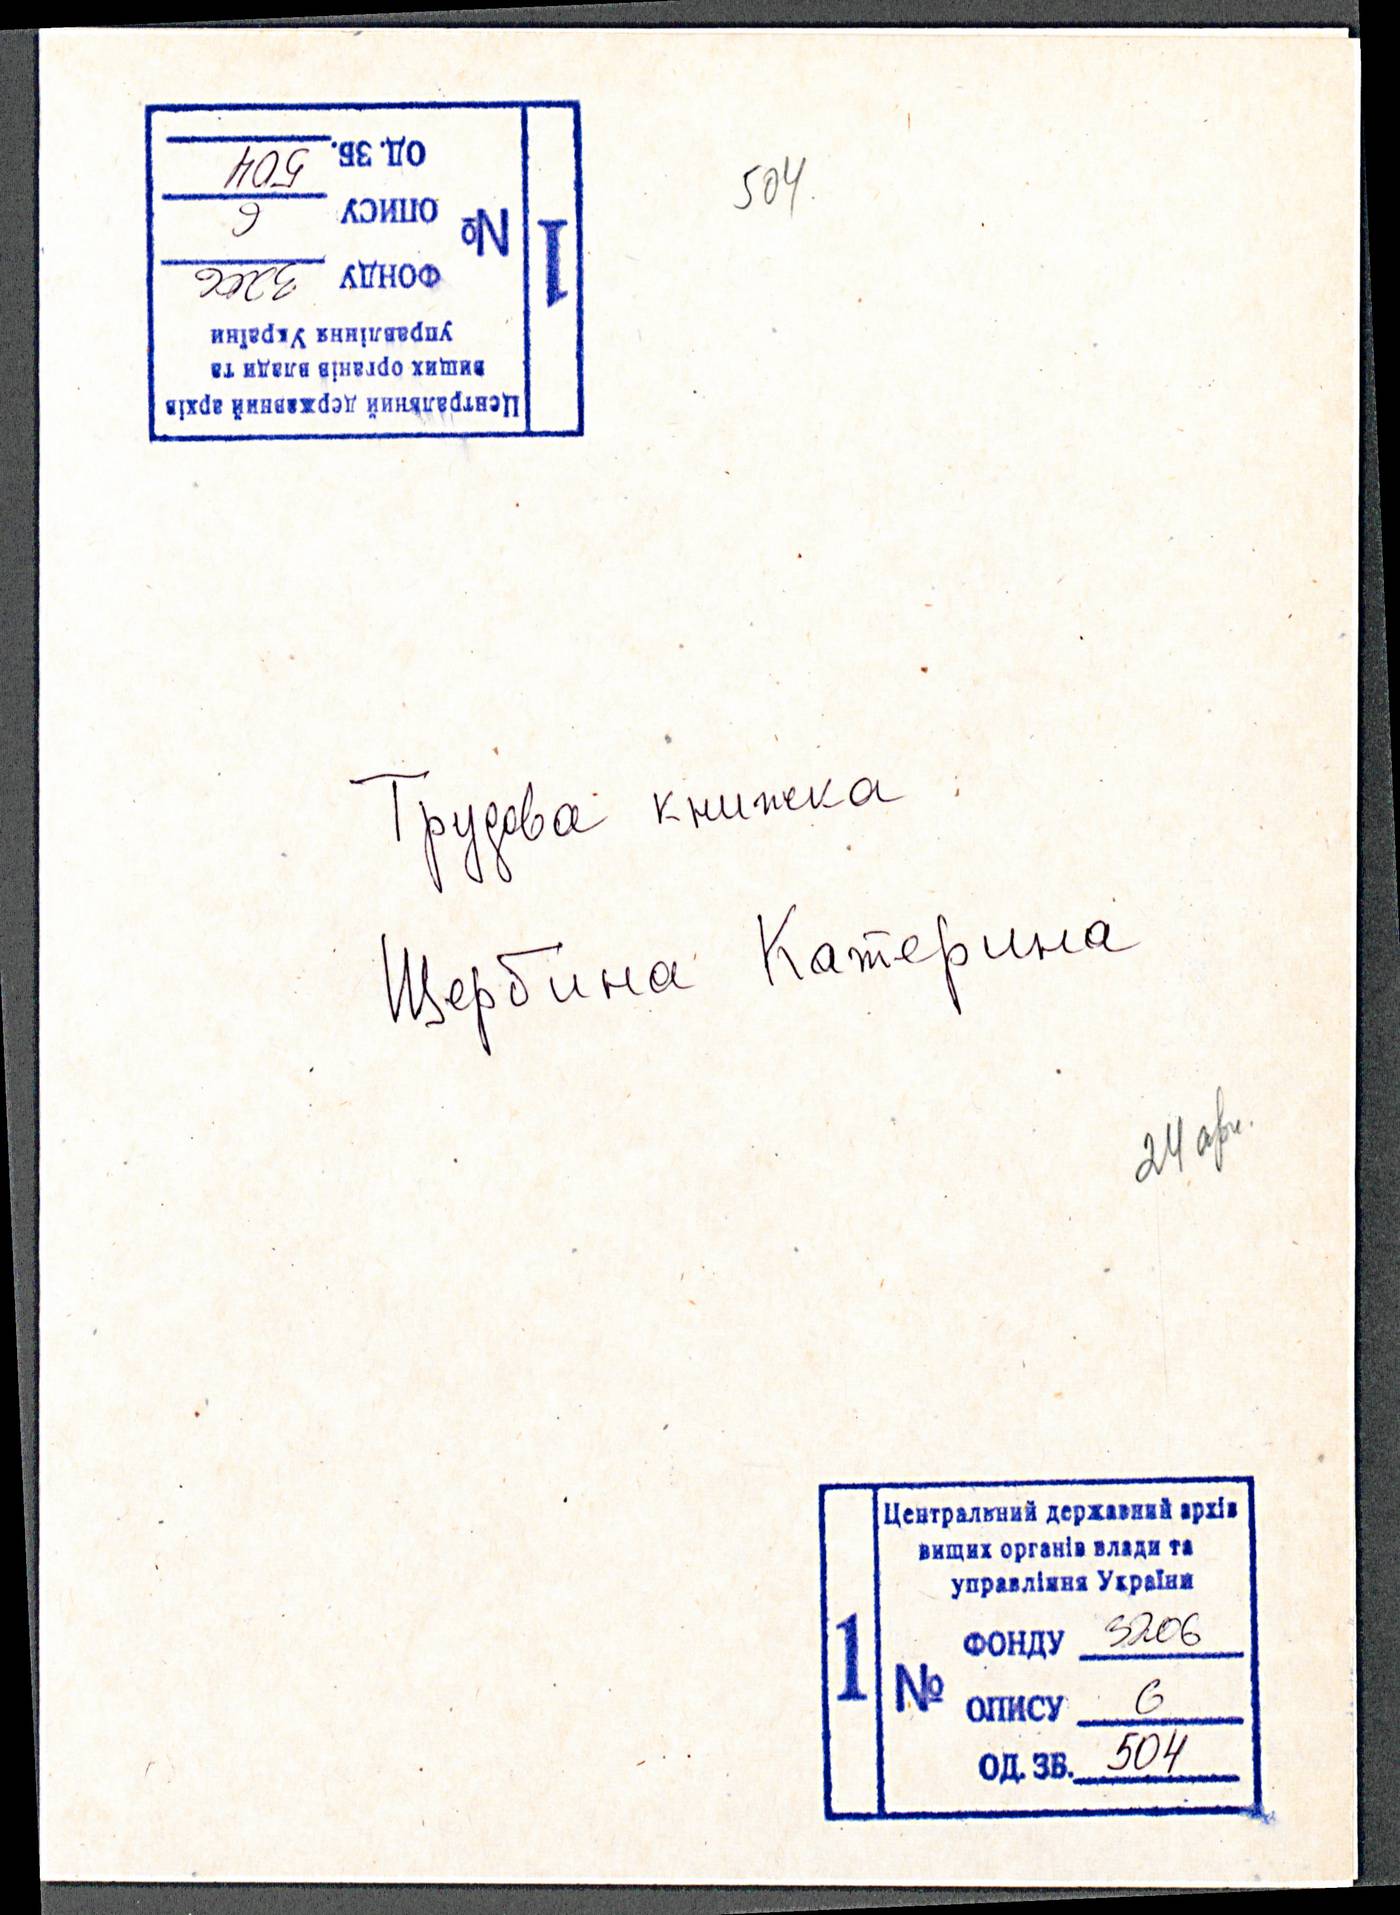 Центральний державний архів
вищих органів влади та
управління України
1
№
ФОНДУ 3206
ОПИСУ 6
ОД. ЗБ. 504
504.
Трудова книжка
Щербина Катерина
24 арк.
Центральний державний архів
вищих органів влади та
управління України
1
№
ФОНДУ 3206
ОПИСУ 6
ОД. ЗБ. 504